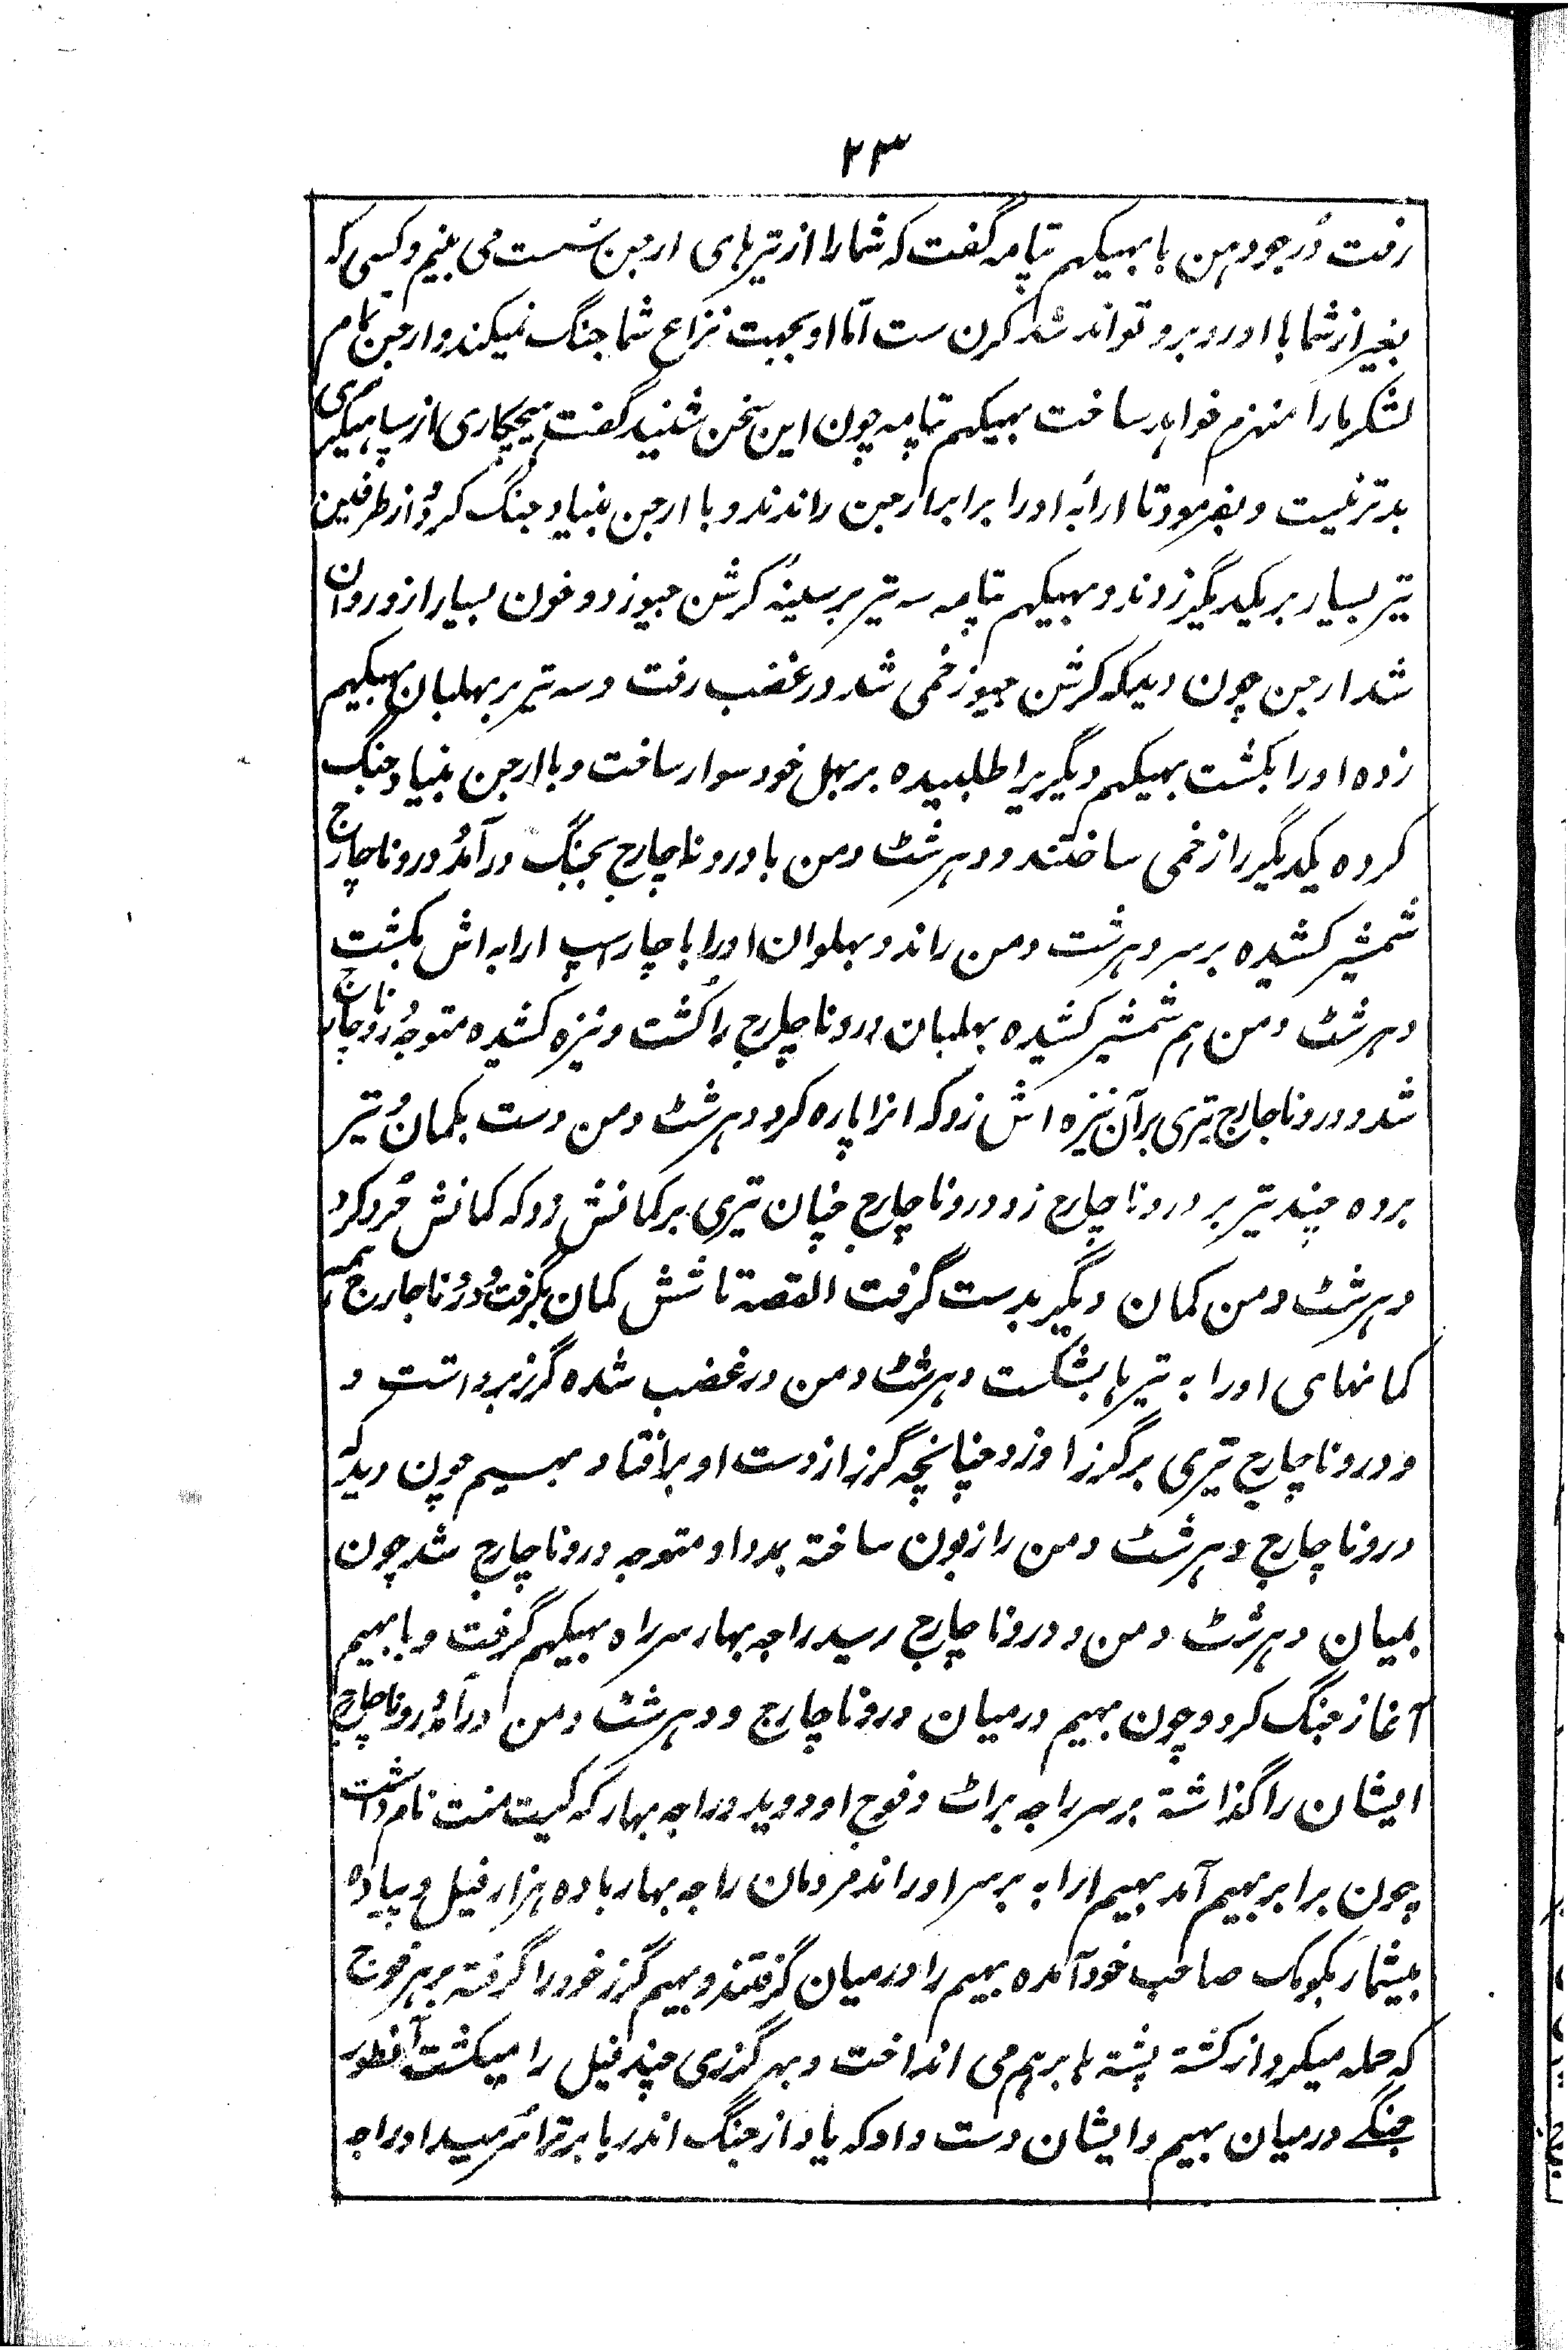 ۲۳
رفت درجودهن با بهیکهم پتامه گفت که شما را از تیرهای ارجن سست می بینم و کسی که
بغیر از شما با او روبرو تواند شد کرن ست اما او بجهت نزاع شما جنگ نمیکند و ارجن تمام
لشکر ما را منهزم خواهد ساخت بهیکهم پتامه چون این سخن شنید گفت هیچکاری از سپاهیگری
بدتر نیست و بفرمود تا ارابه او را برابر ارجن راندند و با ارجن بنیاد جنگ کرد و از طرفین
تیر بسیار بر یکدیگر زدند و بهیکهم پتامه سه تیر بر سینه کرشن جیو زد و خون بسیار ازو روان
شد ارجن چون دید که کرشن جیو زخمی شد در غضب رفت و سه تیر بر بهلبان بهیکهم
زده او را بکشت بهیکهم دیگری را طلبیده بر بهل خود سوار ساخت و با ارجن بنیاد جنگ
کرده یکدیگر را زخمی ساختند و دهرشٹ دمن با دروناچارج بجنگ درآمد و دروناچارج
شمشیر کشیده بر سر دهرشت دمن راند و بهلوان او را با چار اسپ ارابه اش بکشت
دهرشٹ دمن هم شمشیر کشیده بهلبان دروناچارج را کشت و نیزه کشیده متوجه دروناچارج
شد و دروناچارج تیری بر آن نیزه اش زد که آنرا پاره کرد دهرشٹ دمن دست بکمان و تیر
برده چند تیر بر دروناچارج زد و دروناچارج چنان تیری بر کمانش زد که کمانش خرد کرد
دهرشٹ دمن کمان دیگر بدست گرفت القصه تا شش کمان بگرفت و دروناچارج همه
کمانهای او را به تیرها بشکست دهرشٹ دمن در غضب شده گرز برداشت و
و دروناچارج تیری بر گرز او زد چنانچه گرز از دست او بر افتاد بهیم چون دید که
دروناچارج دهرشٹ دمن را زبون ساخته بمدد او متوجه دروناچارج شد چون
بمیان دهرشٹ دمن و دروناچارج رسید راجه بهار سر راه بهیکهم گرفت و با بهیم
آغاز جنگ کرد و چون بهیم درمیان دروناچارج و دهرشٹ دمن درآمد دروناچارج
ایشان را گذاشته بر سر راجه براٹ و فوج او دوید و راجه بهار که کیت منت نام داشت
چون برابر بهیم آمد بهیم ارابه بر سر او راند مردمان راجه بهار با ده هزار فیل و پیاده
بیشمار بکومک صاحب خود آمده بهیم را درمیان گرفتند و بهیم گرز خود را گرفته بر هر فوج
که حمله میکرد از کشته پشته ها برهم می انداخت و بهر گرزی چند فیل را میکشت آنطور
جنگے درمیان بهیم و ایشان دست داد که یاد از جنگ اندر با برتراسر میداد و راجه